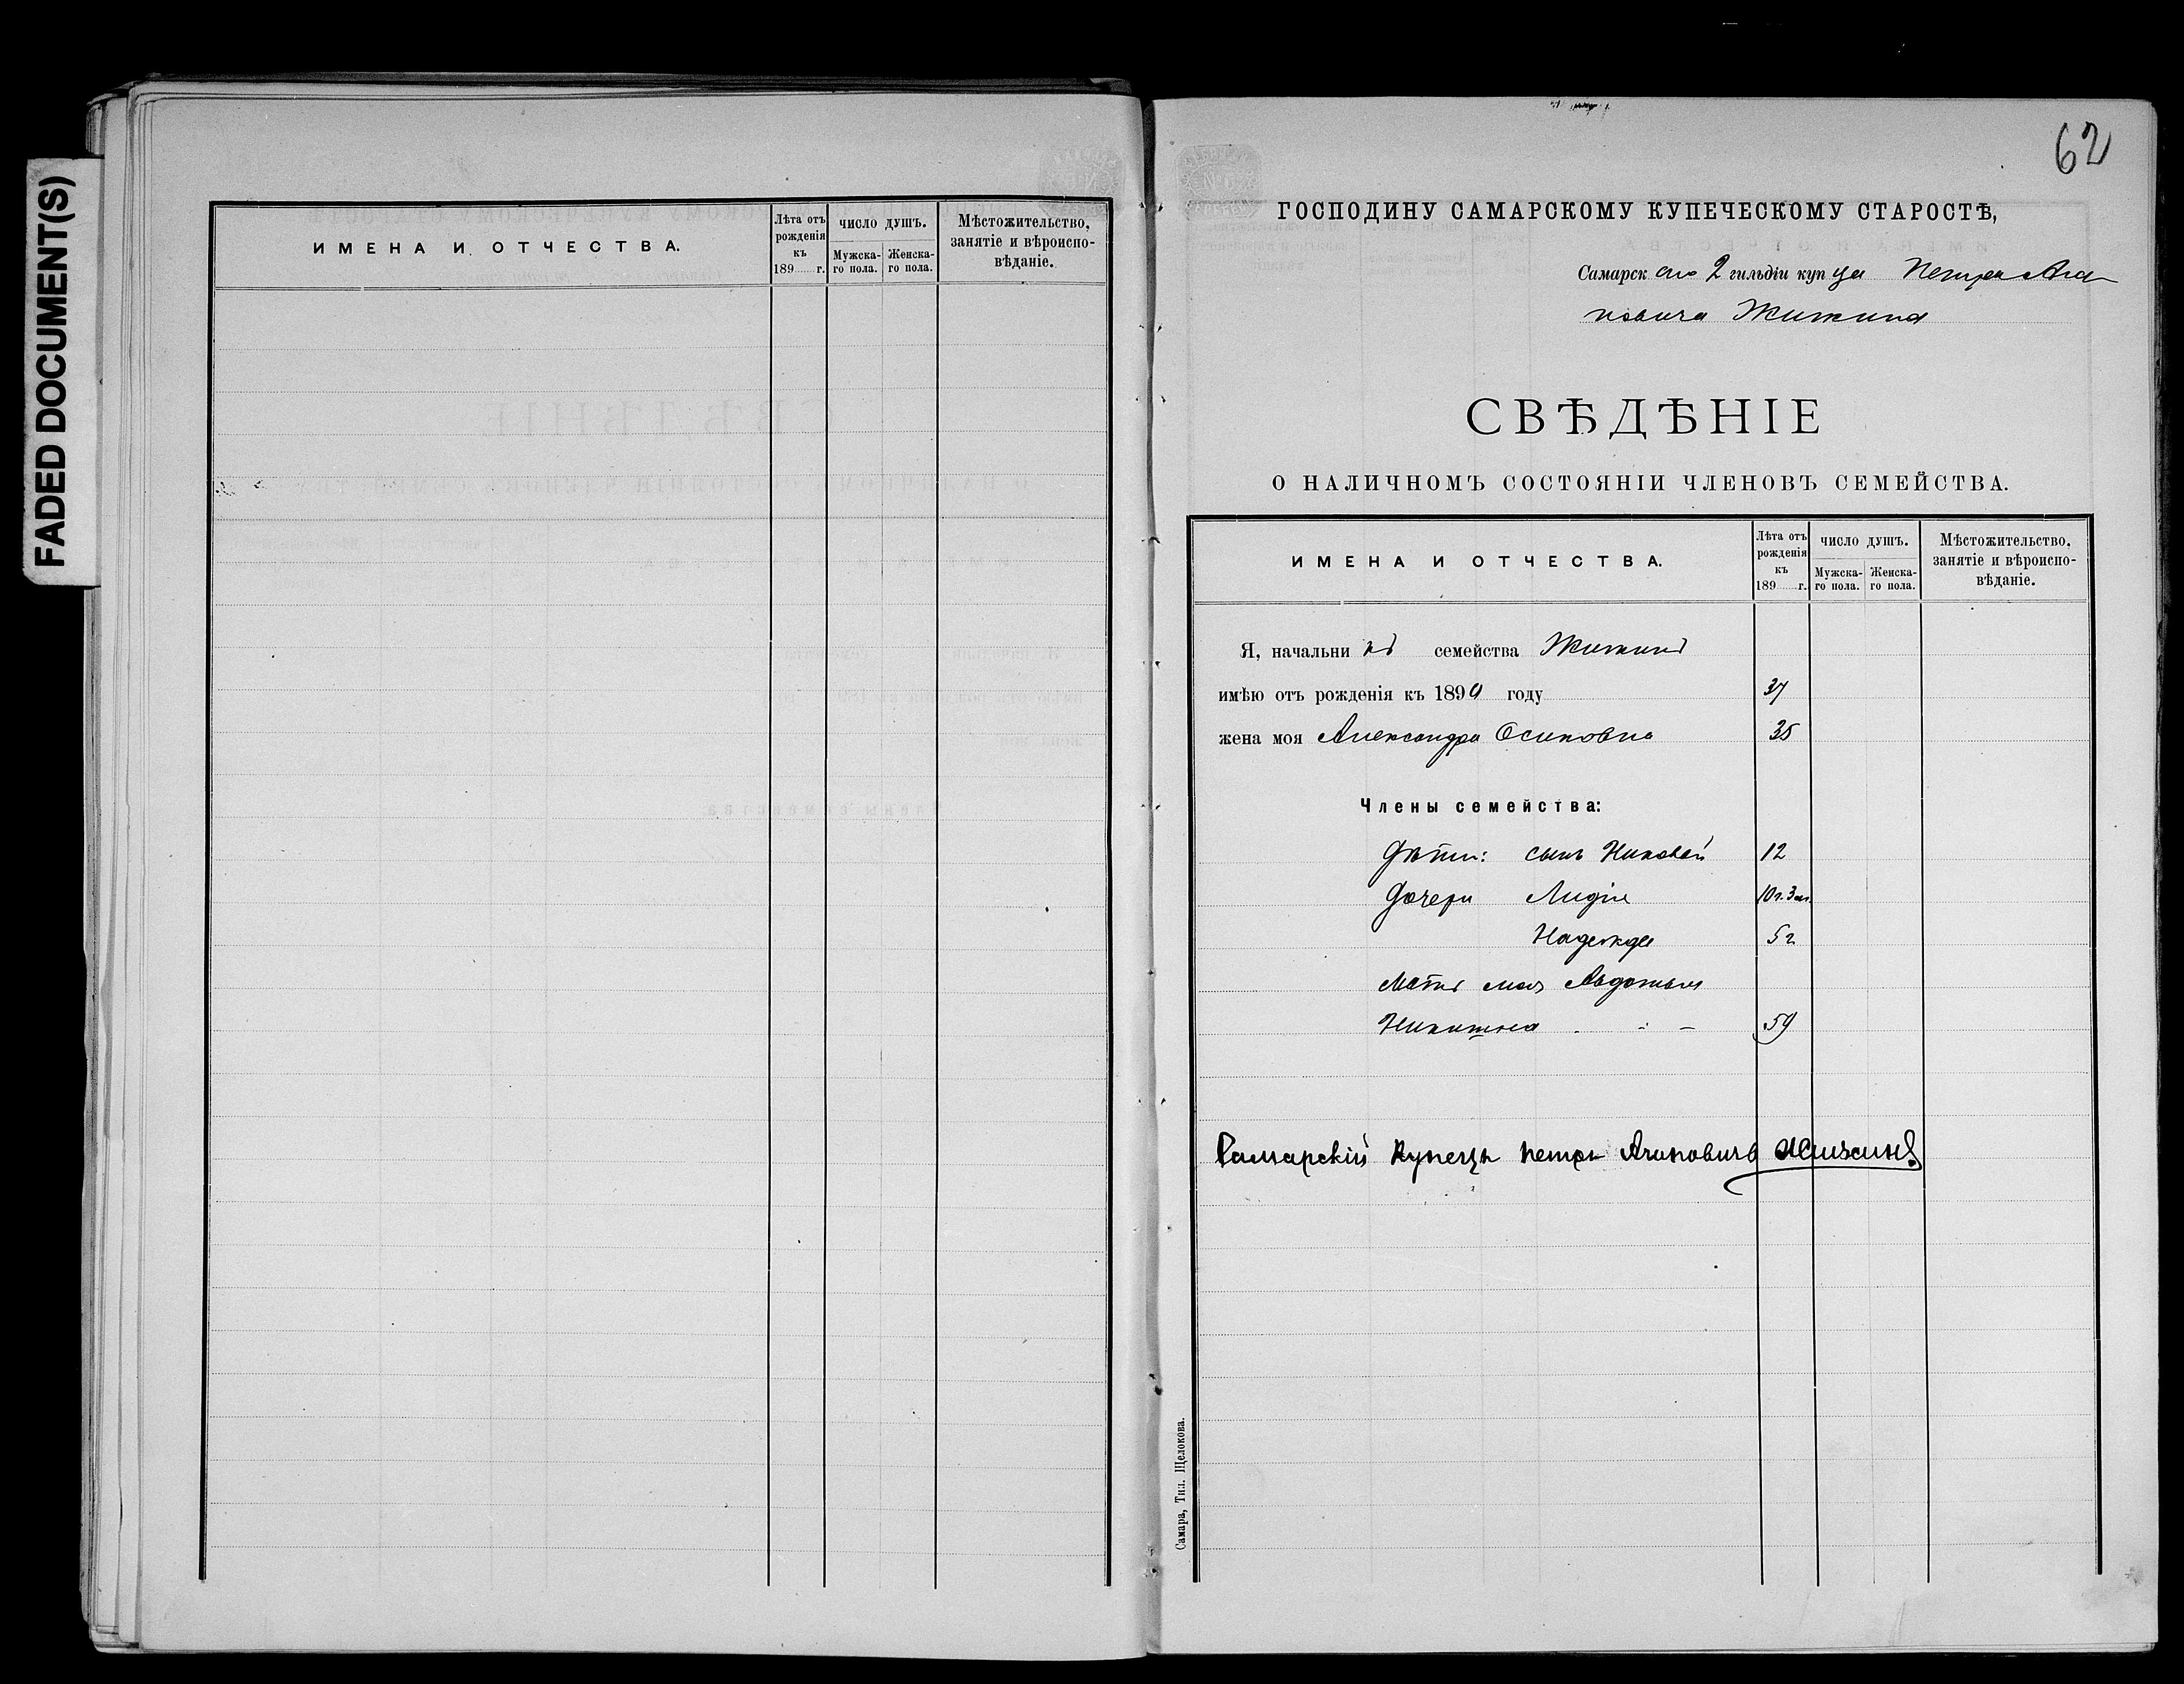 FADED DOCUMENT(S)
ИМЕНА И ОТЧЕСТВА.
Лѣта отъ рожденія къ 189 г.
ЧИСЛО ДУШЪ.
Мужска-го пола.
Женска-го пола.
Мѣстожительство, занятіе и вѣроиспо-вѣданіе.
62
ГОСПОДИНУ САМАРСКОМУ КУПЕЧЕСКОМУ СТАРОСТѢ,
Самарскаго 2 гильдіи купца Петра Ага
повича
СВѢДѢНІЕ
О НАЛИЧНОМЪ СОСТОЯНІИ ЧЛЕНОВЪ СЕМЕЙСТВА.
ИМЕНА И ОТЧЕСТВА.
Лѣта отъ рожденія къ 189 г.
ЧИСЛО ДУШЪ.
Мужска-го пола.
Женска-го пола.
Мѣстожительство, занятіе и вѣроиспо-вѣданіе.
Я, начальникъ семейства
имѣю отъ рожденія къ 1890 году 37
жена моя Александра Осиповна 35
Члены семейства:
Дѣти: сынъ Николай 12
Дочери Лидія 10 г. 3 м.
Надежда 5 г
Мать моя Авдотья
Никитина 59
Самарскій Купецъ Петръ
Самара, Тип. Щелокова.